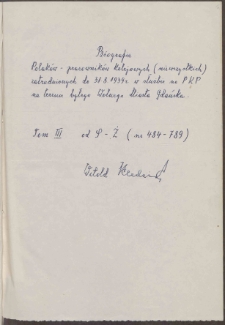 Biografie
Polaków - pracowników kolejowych (niewszystkich)
zatrudnionych do 31.8.1939 r. w służbie na PKP
na terenie byłego Wolnego Miasta Gdańska.
Tom III od P - Ż (nr 484-789)
Witold